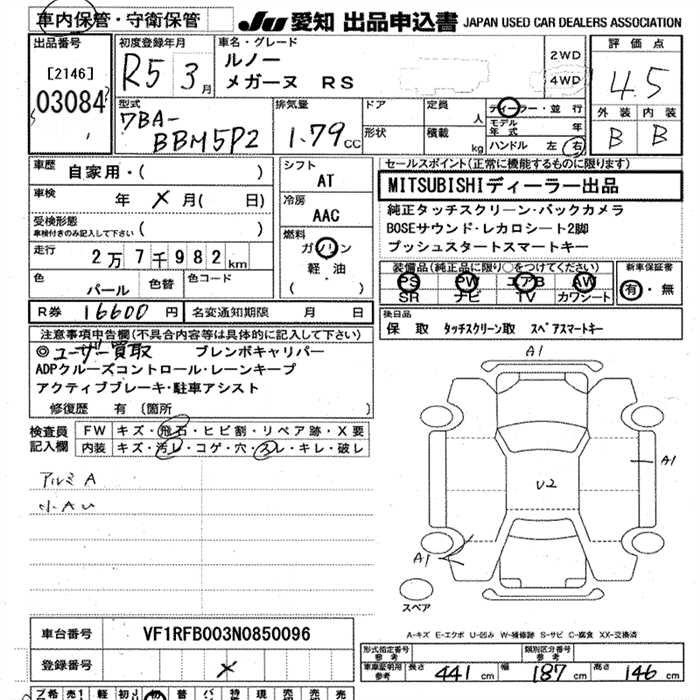 車内保管・守衛保管
JU 愛知 出品申込書 JAPAN USED CAR DEALERS ASSOCIATION
出品番号
[2146]
03084
初度登録年月
R5 3月
車名・グレード
ルノー
メガーヌ RS
2WD
4WD
評価点
4.5
外装 内装
B B
型式
7BA-
BBM5P2
排気量
1.79 CC
ドア
形状
定員 人
積載 kg
ディーラー・並行
モデル年式 年
ハンドル 左 右
車歴 自家用・( )
車検 年 × 月( 日)
受検形態
車検付きのみ記入して下さい ( )
走行 2万7千982km
色 パール 色替 色コード
シフト
AT
冷房
AAC
燃料
ガソリン
軽・油
( )
R券 16600円 名変通知期限 月 日
セールスポイント(正常に機能するものに限ります)
MITSUBISHIディーラー出品
純正タッチスクリーン・バックカメラ
BOSEサウンド・レカロシート2脚
プッシュスタートスマートキー
装備品(純正品に限り○をつけてください)
PS PW エアB AW
SR ナビ TV カワシート
新車保証書
有・無
後日品
保 取 タッチスクリーン取 スペアスマートキー
注意事項申告欄(不具合内容等は具体的に記入して下さい)
◎ユーザー買取 ブレンボキャリパー
ADPクルーズコントロール・レーンキープ
アクティブブレーキ・駐車アシスト
修復歴 有 〔箇所 〕
検査員記入欄
FW キズ・飛石・ヒビ割・リペア跡・X要
内装 キズ・汚レ・コゲ・穴・スレ・キレ・破レ
アルミ A
小AU
A1
A1
U2
A1
スペア
A-キズ E-エクボ U-凹み W-補修跡 S-サビ C-腐食 XX-交換済
車台番号 VF1RFB003N0850096
登録番号 ×
形式指定番号 参考
類別区分番号 参考
車庫証明用 参考 長さ 441 cm 幅 187 cm 高さ 146 cm